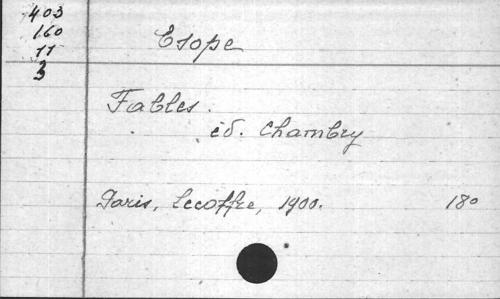 403
160
11
3
Esope
Fables.
éd. Chambry
Paris, Lecoffre, 1900. 180